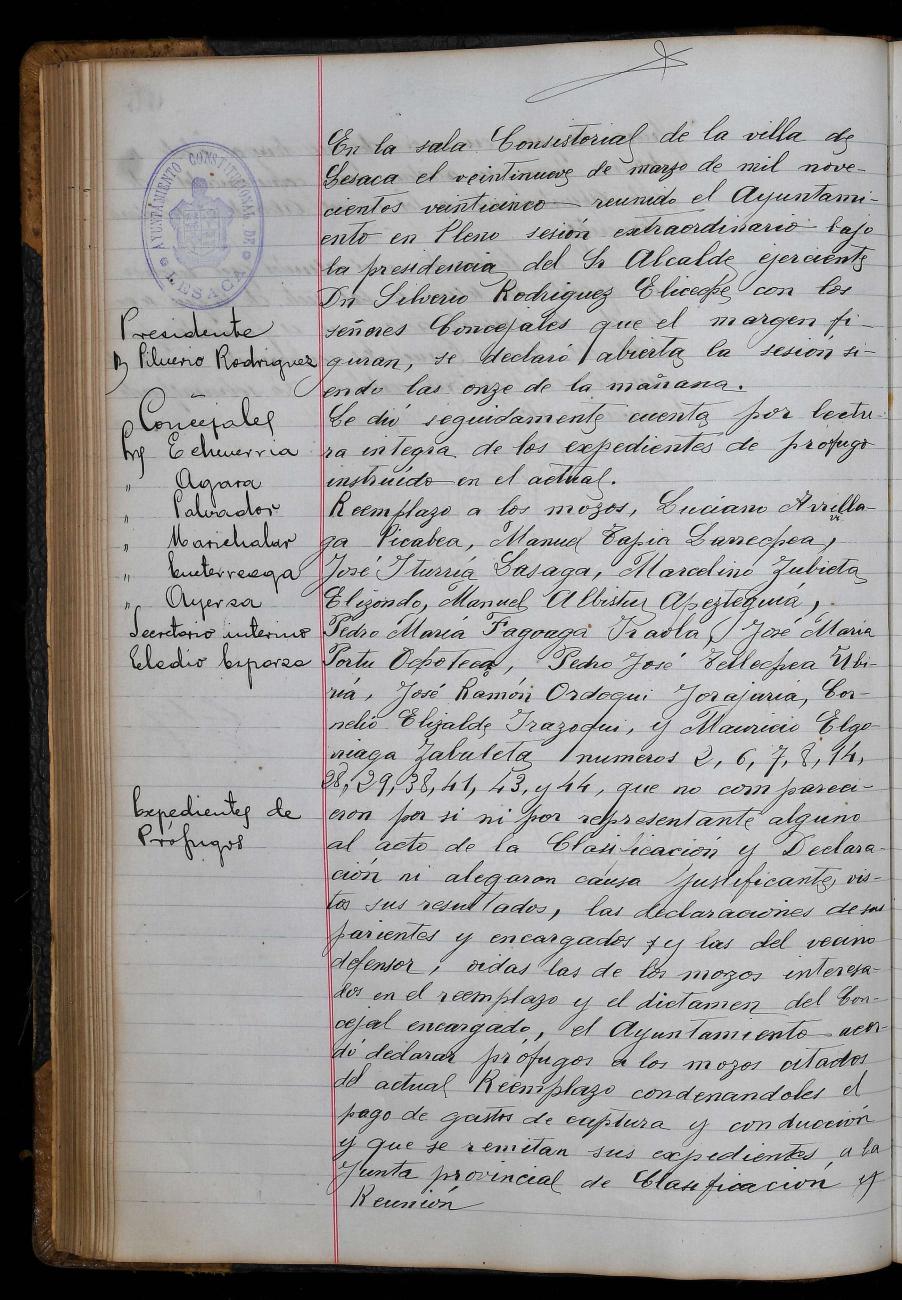 AYUNTAMIENTO CONSTITUCIONAL DE
LESACA
Presidente
D Silverio Rodriguez
Concejales
Sres Echeverria
" Agara
" Salvador
" Marichalar
" Yuterreaga
" Oyersa
Secretario interino
Eladio Esparza
Expedientes de
Prófugos
En la sala Consistorial de la villa de
Lesaca el veintinueve de marzo de mil nove-
cientos veinticinco reunido el Ayuntami-
ento en Pleno sesión extraordinario bajo
la presidencia del Sr Alcalde ejerciente
Dn Silverio Rodriguez Elicechе con los
señores Concejales que el margen fi-
guran, se declaró abierta la sesión si-
endo las onze de la mañana.
Se dió seguidamente cuenta por lectu-
ra integra de los expedientes de prófugo
instruido en el actual.
Reemplazo a los mozos, Luciano Arrilla-
ga Picabea, Manuel Tapia Larrechea,
José Iturria Lasaga, Marcelino Zubieta
Elizondo, Manuel Albistur Apezteguia,
Pedro Maria Fagoaga Iraola, José Maria
Portu Ochoteco, Pedro José Tellechea Ubi-
ria, José Ramón Ordoqui Jorajuria, Cor-
nelio Elizalde Irazoqui, y Mauricio Elgo
rriaga Zabaleta numeros 2, 6, 7, 8, 14,
28, 29, 38, 41, 43, y 44, que no compareci-
eron por si ni por representante alguno
al acto de la Clasificación y Declara-
ción ni alegaron causa justificante, vis-
tos sus resultados, las declaraciones de sus
parientes y encargados y las del vecino
defensor, oidas las de los mozos interesa-
dos en el reemplazo y el dictamen del Con-
cejal encargado, el Ayuntamiento acor-
dó declarar prófugos a los mozos citados
del actual Reemplazo condenandoles el
pago de gastos de captura y conducción
y que se remitan sus expedientes a la
Junta provincial de Clasificación y
Reunión